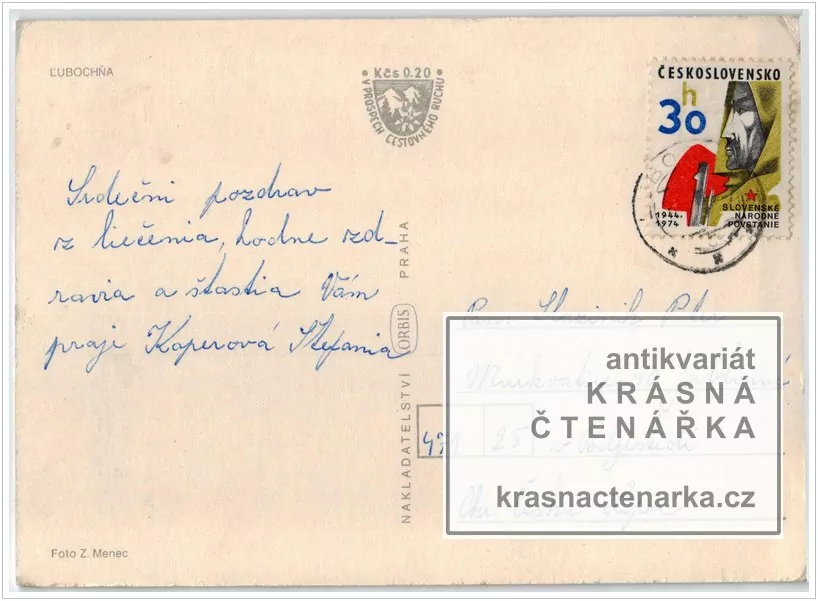 ĽUBOCHŇA
Kčs 0.20
V PROSPECH CESTOVNÉHO RUCHU
ČESKOSLOVENSKO
30 h
1944-
1974
SLOVENSKÉ
NÁRODNÉ
POVSTANIE
Srdečni pozdrav
z liečenia, hodne zd-
ravia a štastia Vám
praji Kaperová Štefania
NAKLADATELSTVÍ ORBIS PRAHA
antikvariát
KRÁSNÁ
ČTENÁŘKA
krasnactenarka.cz
25
Foto Z. Menec